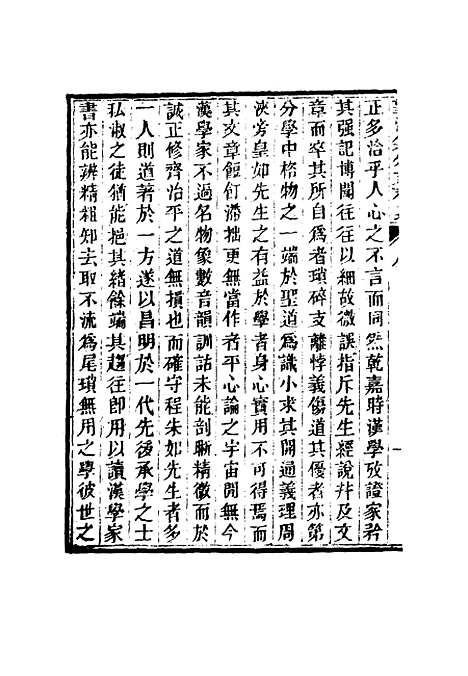 正多洽乎人心之不言而同然乾嘉時漢學攷證家矜
其强記博聞往往以細故微誤指斥先生經說幷及文
章而卒其所自爲者瑣碎支離悖義傷道其優者亦第
分學中格物之一端於聖道爲識小求其開通義理周
浹旁皇如先生之有益於學者身心實用不可得焉而
其文章餖飣滯拙更無當作者平心論之宇宙閒無今
漢學家不過名物象數音韻訓詁未能剖晰精微而於
誠正修齊治平之道無損也而確守程朱如先生者多
一人則道著於一方遂以昌明於一代先後承學之士
私淑之徒猶能挹其緖餘端其趨往卽用以讀漢學家
書亦能辨精粗知去取不流爲尾瑣無用之學彼世之